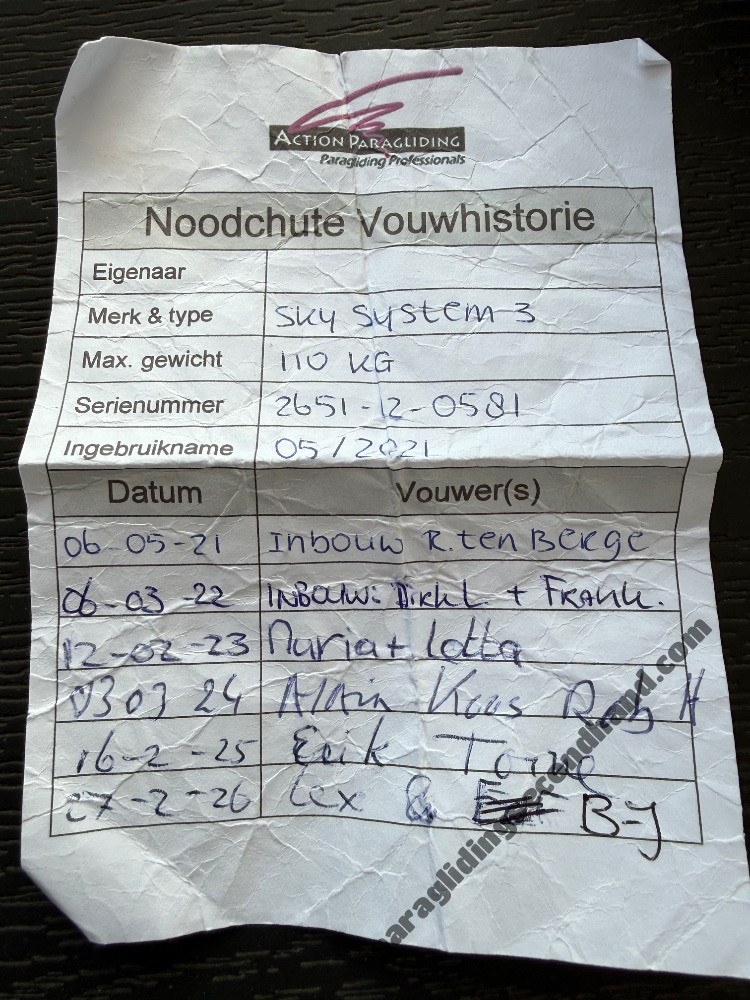 ACTION PARAGLIDING
Paragliding Professionals
Noodchute Vouwhistorie
Eigenaar
Merk & type Sky System 3
Max. gewicht 110 KG
Serienummer 2651-12-0581
Ingebruikname 05/2021
Datum Vouwer(s)
06-05-21 Inbouw R.ten Berge
06-03-22 INBOUW: Dirk L + FRANK.
12-02-23 + Lotta
03 03 24 Alain
16-2-25 Erik
27-2-26 Lex & B-J
paraglidingsecondhand.com